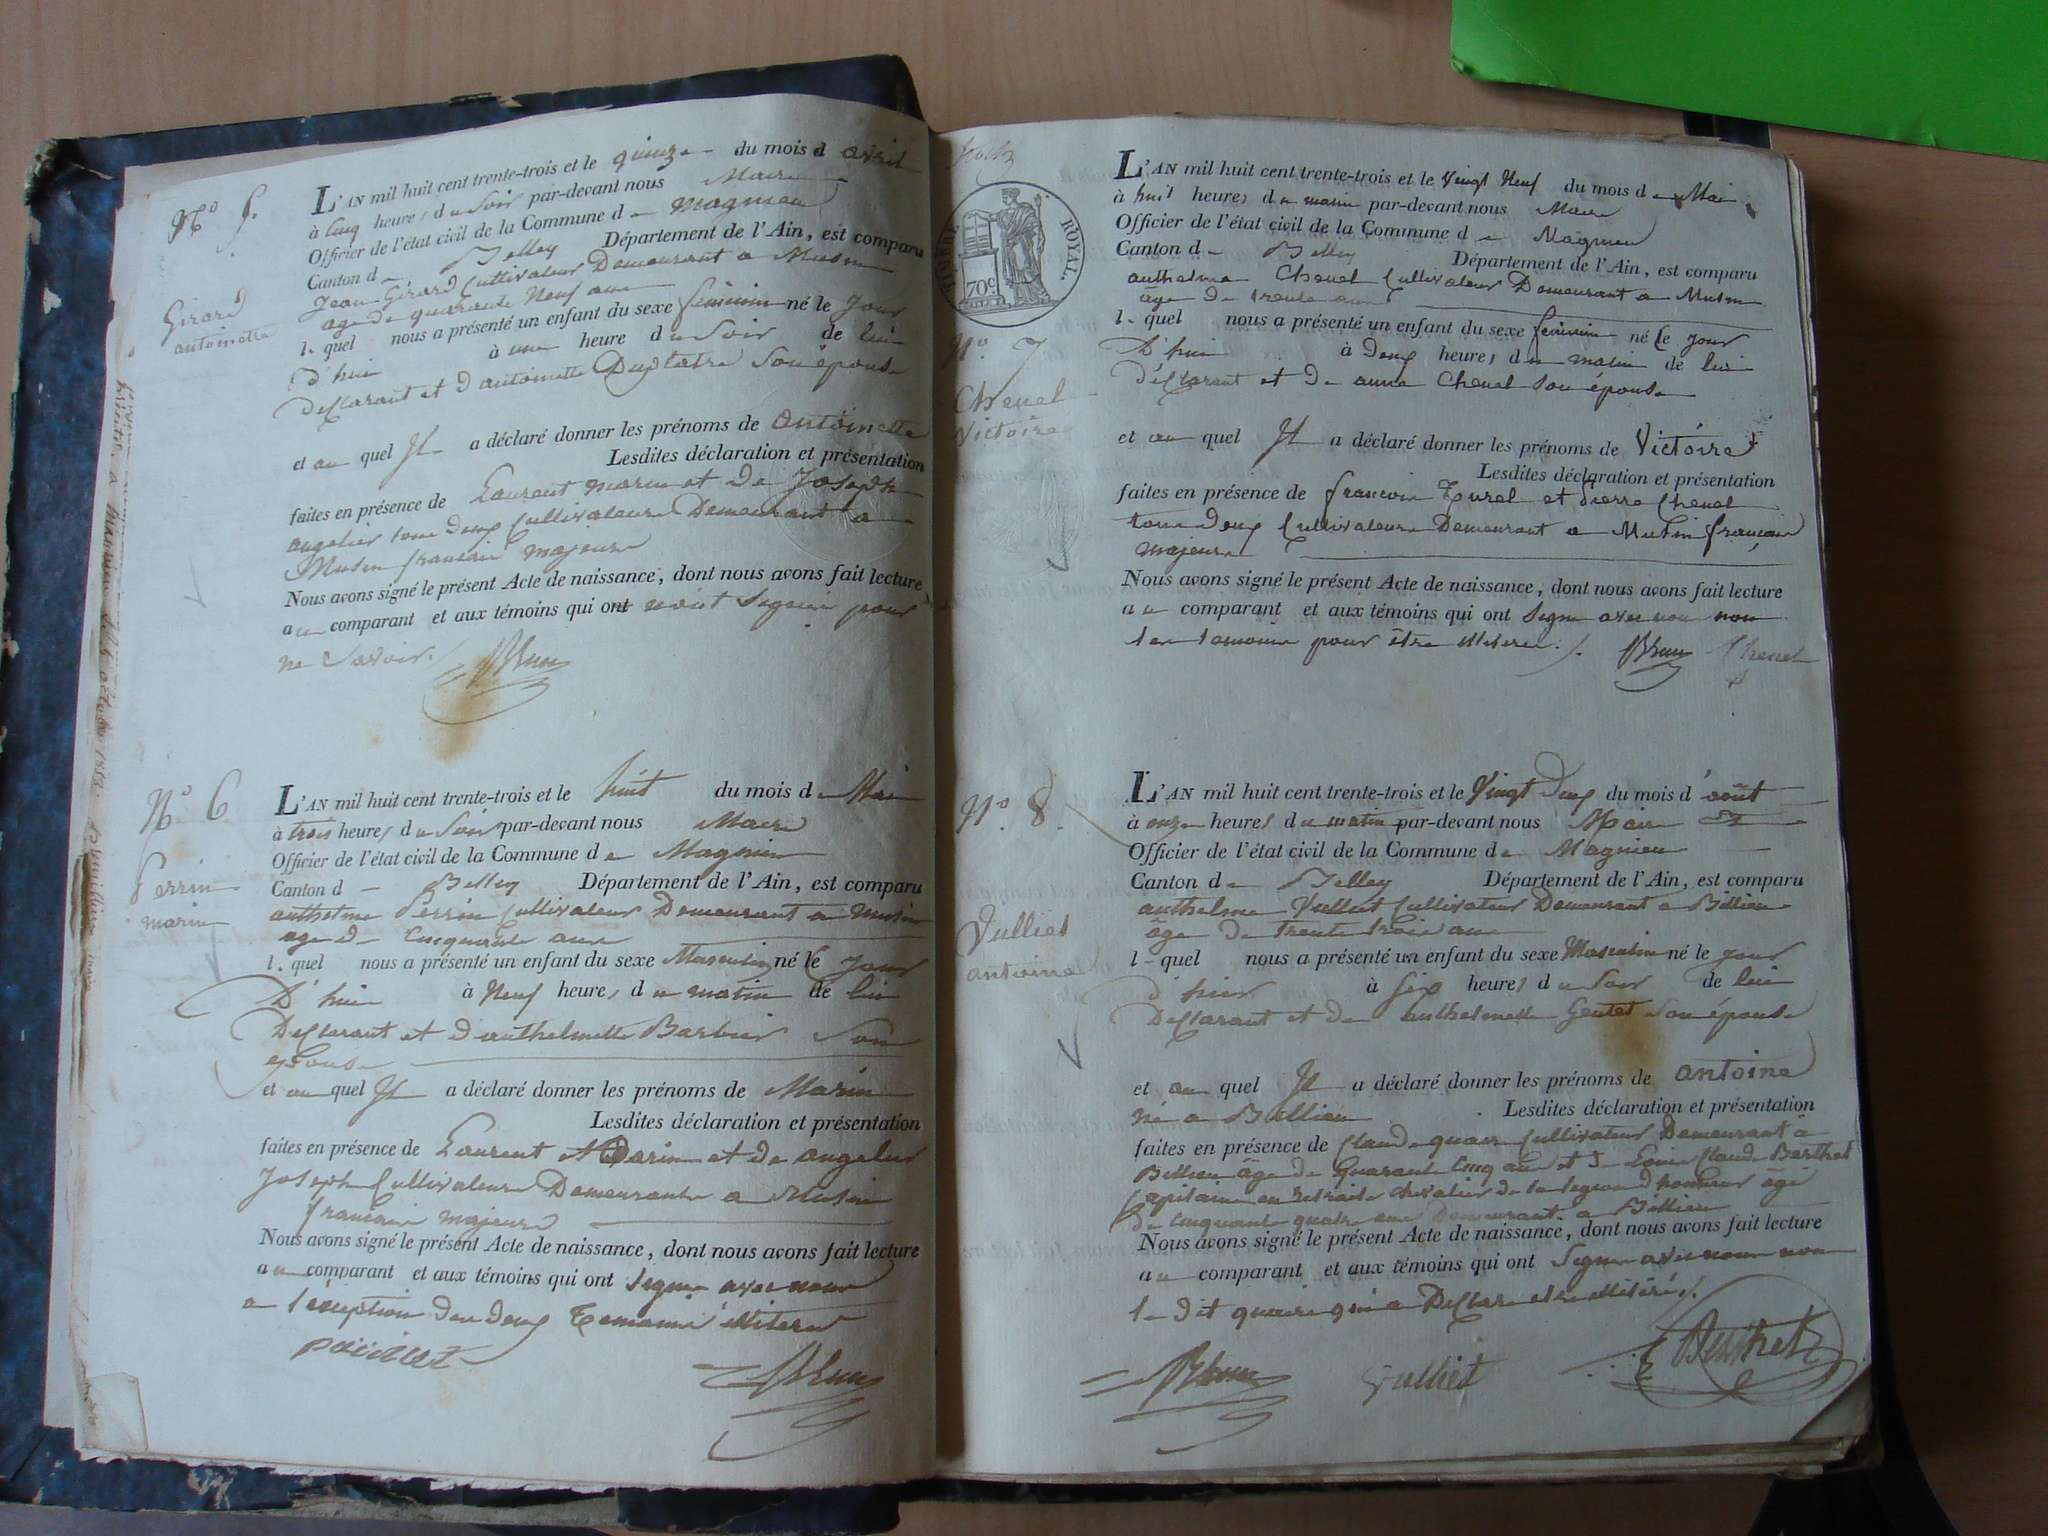 N.o 5.
Girard
antoinette
L'AN mil huit cent trente-trois et le quinze du mois d avril
à cinq heures du soir par-devant nous Maire
Officier de l'état civil de la Commune de magnieu
Canton de Belley Département de l'Ain, est comparu
Jean Girard Cultivateur Demeurant a Musin
age de quarante Neuf ans
le quel nous a présenté un enfant du sexe féminin né le Jour
d'hui à une heure du Soir de lui
déclarant et d'antoinette son épouse
et au quel Il a déclaré donner les prénoms de antoinette
Lesdites déclaration et présentation
faites en présence de Laurent marin et de Joseph
angelier tous deux Cultivateurs Demeurant a
Musin francais majeurs
Nous avons signé le présent Acte de naissance, dont nous avons fait lecture
au comparant et aux témoins qui ont pour
ne Savoir.
Brun
N.o 6
Perrin
marin
L'AN mil huit cent trente-trois et le huit du mois de Mai
à trois heures du Soir par-devant nous Maire
Officier de l'état civil de la Commune de Magnieu
Canton d Belley Département de l'Ain, est comparu
anthelme Perrin Cultivateur Demeurant a musin
age de Cinquante ans
le quel nous a présenté un enfant du sexe Masculin né le Jour
D'hui à Neuf heures du matin de lui
Déclarant et d'anthelmette Barbier Son
epouse
et au quel Il a déclaré donner les prénoms de Marin
Lesdites déclaration et présentation
faites en présence de Laurent Marin et de angelier
Joseph Cultivateurs Demeurants a Musin
francais majeurs
Nous avons signé le présent Acte de naissance, dont nous avons fait lecture
au comparant et aux témoins qui ont Signe avec nous
a l'exeption des deux Temoins
Brun
TIMBRE ROYAL.
70c
N.o 7
Chenel
Victoire
L'AN mil huit cent trente-trois et le Vingt Neuf du mois de Mai
à huit heures du matin par-devant nous Maire
Officier de l'état civil de la Commune de Magnieu
Canton de Belley Département de l'Ain, est comparu
anthelme Chenel Cultivateur Demeurant a Musin
age de trente ans
le quel nous a présenté un enfant du sexe feminin né le jour
D'hui à Deux heures du matin de lui
déclarant et de anne Chenel son épouse
et au quel Il a déclaré donner les prénoms de Victoire
Lesdites déclaration et présentation
faites en présence de francois Turel et pierre Chenel
tous deux Cultivateurs Demeurant a Musin francais
majeurs
Nous avons signé le présent Acte de naissance, dont nous avons fait lecture
au comparant et aux témoins qui ont Signe avec nous non
les temoins pour être illiteres.
Brun Chenel
N.o 8.
Vulliet
antoine
L'AN mil huit cent trente-trois et le Vingt Deux du mois d'août
à onze heures du matin par-devant nous Maire
Officier de l'état civil de la Commune de Magnieu
Canton de Belley Département de l'Ain, est comparu
anthelme Vulliet Cultivateur Demeurant a Billieu
âge de trente trois ans
le quel nous a présenté un enfant du sexe Masculin né le jour
d'hier à Six heures du Soir de lui
Déclarant et de anthelmette Gentet son épouse
et au quel Il a déclaré donner les prénoms de antoine
né a Billieu Lesdites déclaration et présentation
faites en présence de Claude quaire Cultivateur Demeurant à
Billieu âge de Quarante Cinq ans et de Louis Claude Berthet
Capitaine en retraite chevalier de la legion d'honneur âgé
de cinquante quatre ans Demeurant a Billieu
Nous avons signé le présent Acte de naissance, dont nous avons fait lecture
au comparant et aux témoins qui ont Signe avec nous non
le dit quaire qui a Déclaré etre illitéré.
Brun Vulliet Berthet